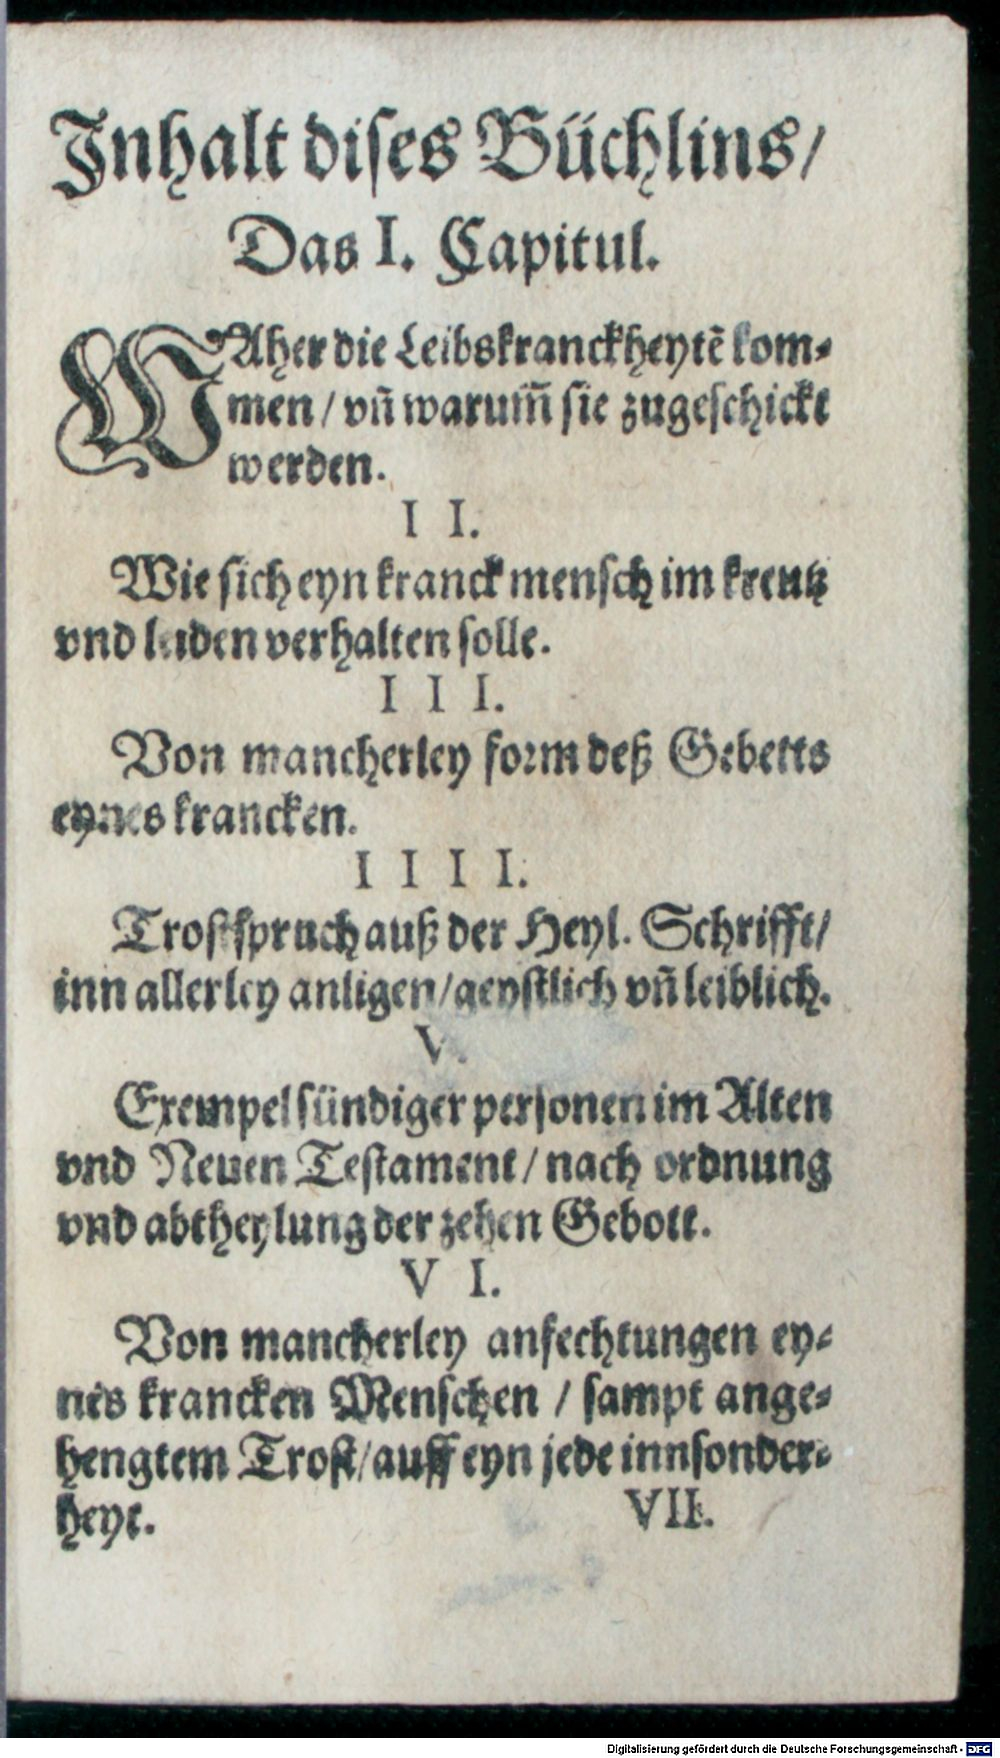 Inhalt diſes Büchlins/
Das I. Capitul.
WAher die Leibskranckheytẽ kom⸗
men / vñ warum̃ ſie zugeſchickt
werden.
I I.
Wie ſich eyn kranck menſch im kreutz
vnd leiden verhalten ſolle.
I I I.
Von mancherley form deß Gebetts
eynes krancken.
I I I I.
Troſtſpruch auß der Heyl. Schrifft/
inn allerley anligen/geyſtlich vñ leiblich.
V.
Exempel ſündiger perſonen im Alten
vnd Neuen Teſtament / nach ordnung
vnd abtheylung der zehen Gebott.
V I.
Von mancherley anfechtungen ey⸗
nes krancken Menſchen / ſampt ange⸗
hengtem Troſt/auff eyn jede innſonder⸗
heyt. VII.
Digitalisierung gefördert durch die Deutsche Forschungsgemeinschaft - DFG